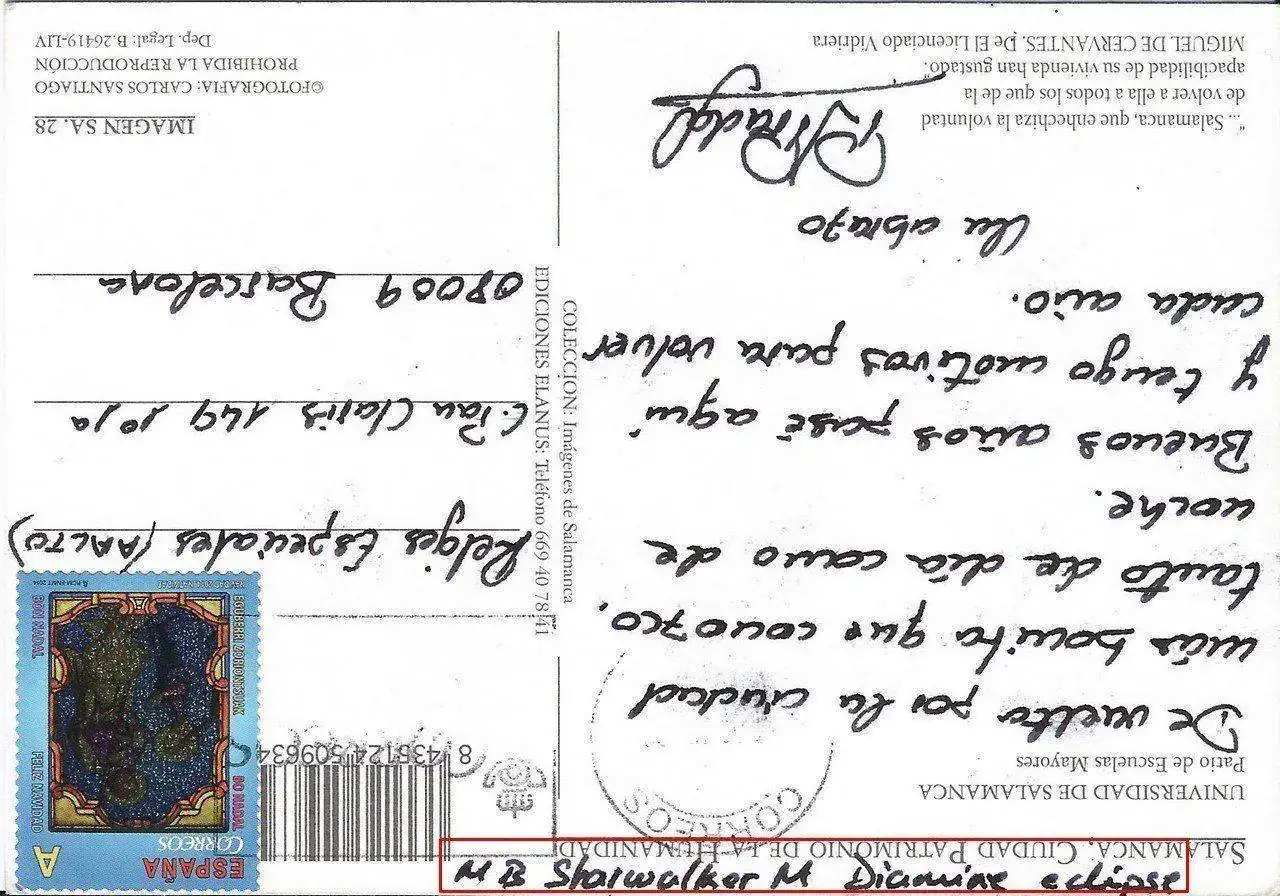 SALAMANCA, CIUDAD PATRIMONIO DE LA HUMANIDAD
UNIVERSIDAD DE SALAMANCA
Patio de Escuelas Mayores
De vuelta por la ciudad
más bonita que conozco,
tanto de día como de
noche.
Buenos años pasé aquí
y tengo motivos para volver
cada año.
Un abrazo
"... Salamanca, que enhechiza la voluntad
de volver a ella a todos los que de la
apacibilidad de su vivienda han gustado".
MIGUEL DE CERVANTES. De El Licenciado Vidriera
CORREOS
COLECCION: Imágenes de Salamanca
EDICIONES ELANUS: Teléfono 669 40 78 41
8 435124 509634
ESPAÑA
CORREOS
A
FELIZ NAVIDAD
BO NADAL
EGUBERRI ZORIONTSUAK
BON NADAL
NAVIDAD
Relojes Especiales (AALTO)
C. Pau Claris 149 1º 1ª
08009 Barcelona
IMAGEN SA. 28
©FOTOGRAFIA: CARLOS SANTIAGO
PROHIBIDA LA REPRODUCCIÓN
Dep. Legal: B.26419-LIV
M B Skaiwalker M Diamine eclipse